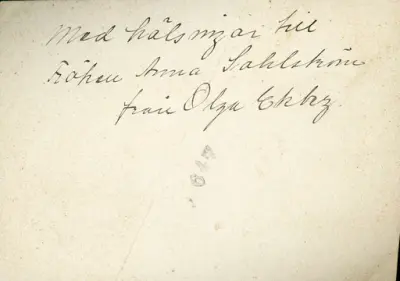 Med hälsnigar till
Fröken Anna Dahlström
från Olga Ekbrg.
647